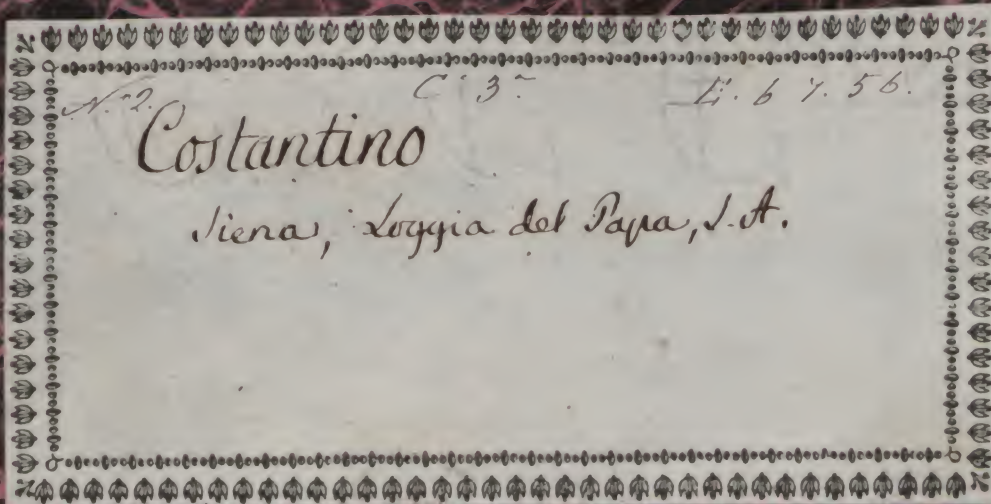 N.° 2. C. 3.ª L. 6 7. 56.
Costantino
Siena, Loggia del Papa, S. A.